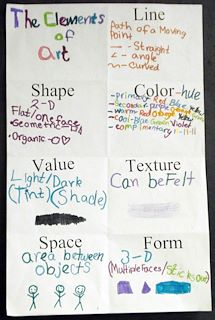 The Elements
of
Art
Line
Path of a Moving
Point
- Straight
- angle
- Curved
Shape
2-D
Flat/one face
-Geometric
-Organic
Color-hue
-primary Red Blue Yellow
-Secondary-purple orange green
-warm-Red orange Yellow
-cool-Blue Green Violet
-complimentary
Value
Light/Dark
(Tint)(Shade)
Texture
Can be Felt
Space
area between
objects
Form
3-D
(Multiple Faces/Sticks out)